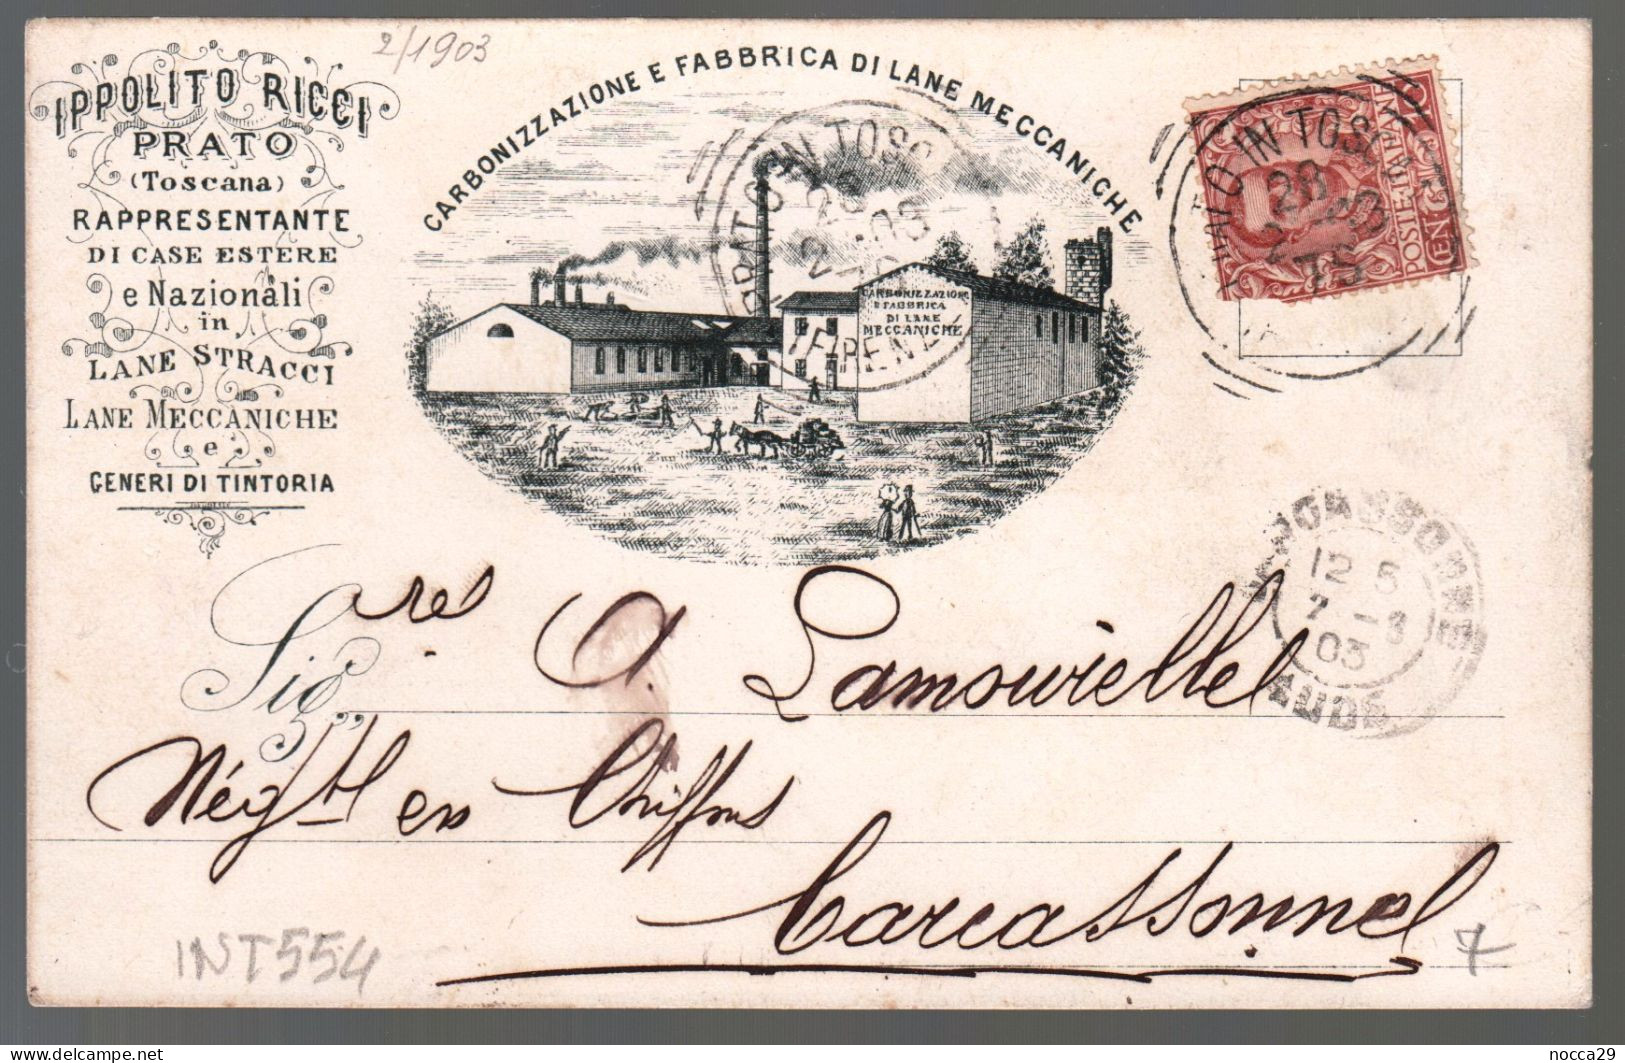 2/1903
IPPOLITO RICCI
PRATO
(Toscana)
RAPPRESENTANTE
DI CASE ESTERE
e Nazionali
in
LANE STRACCI
LANE MECCANICHE
e
GENERI DI TINTORIA
CARBONIZZAZIONE E FABBRICA DI LANE MECCANICHE
CARBONIZZAZIONE
E FABBRICA
DI LANE
MECCANICHE
PRATO IN TOSC
28
2-03
FIRENZE
IN TOSCA
28
75
POSTE ITALIANE
CARCASSONNE
12 5
2-3
03
AUDE
Sig.res A. Lamouriellel
Négt en Chiffons
Carcassonnel
INT554
7
delcampe.net
nocca29